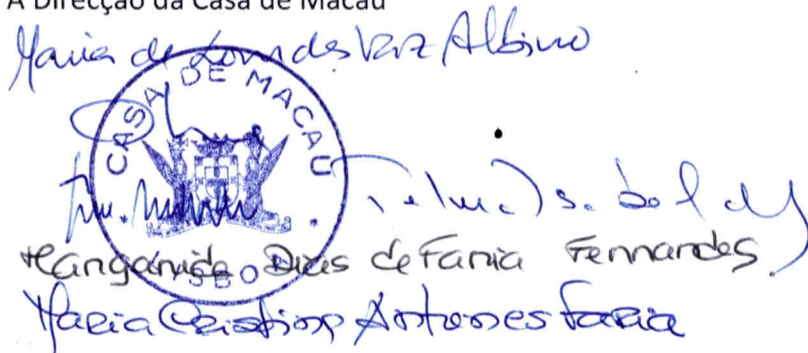 A Direcção da Casa de Macau
Maria de Lourdes Vaz Albino
CASA DE MACAU
Margarida Dias de Faria Fernandes
Maria Cristina Antunes Faria